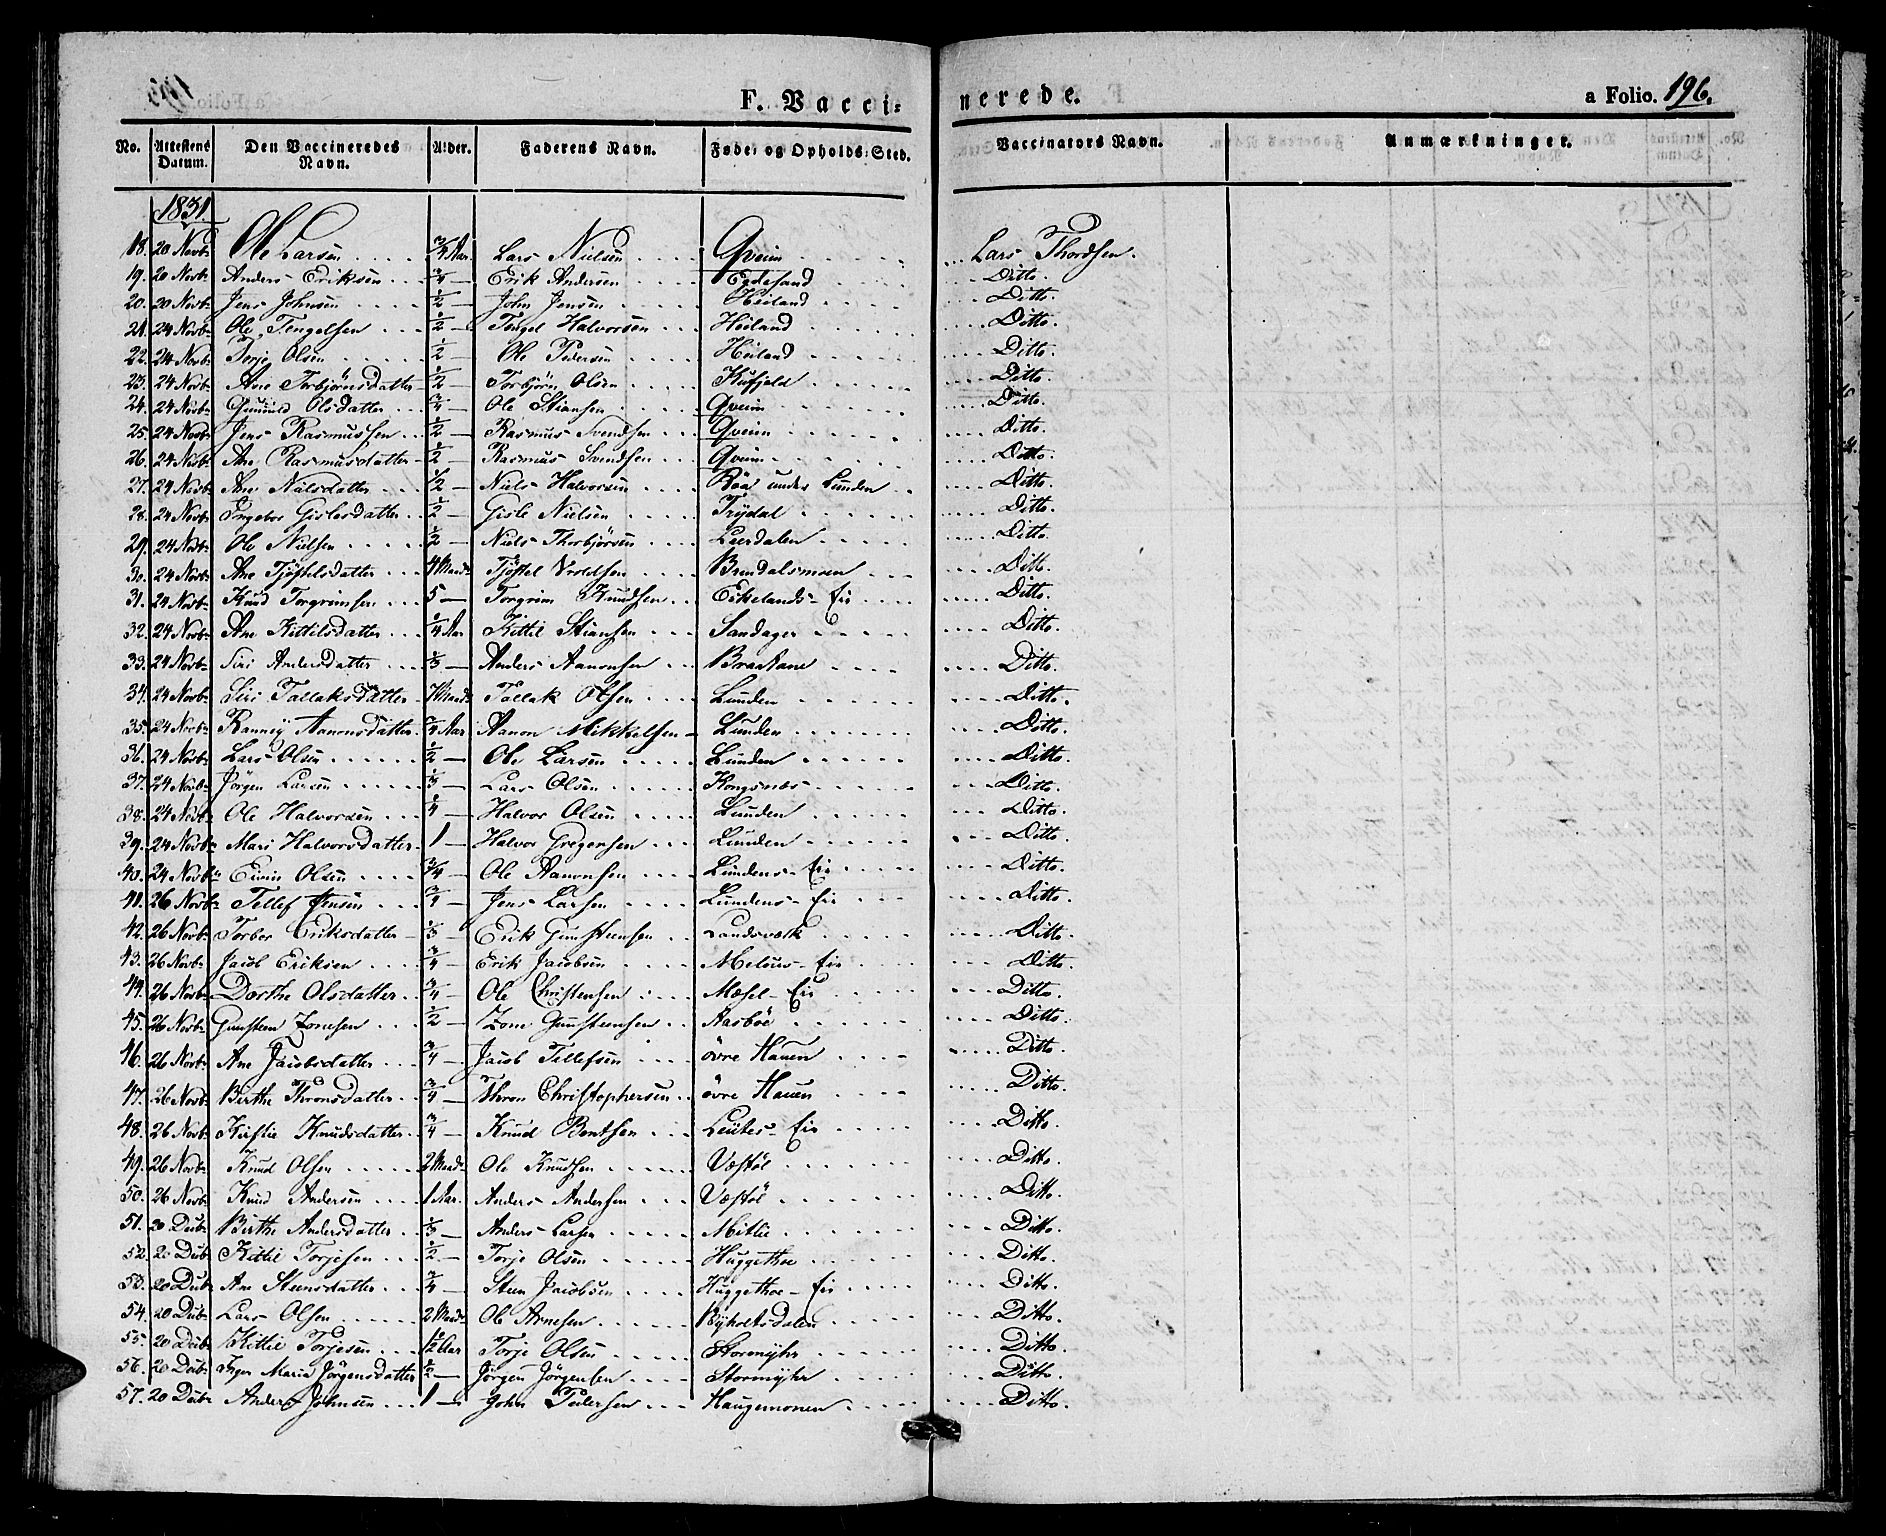 F. Vacci= nerede. a Folio. 196.
No. Attestens Datum. Den Vaccineredes Navn. Alder. Faderens Navn. Føde= og Opholds=Sted. Vaccinators Navn. Anmærkninger.
1831.
18. 20 Novb. Ole Larsen 3/4 Aar. Lars Nielsen Qveim Lars Thordsen.
19. 20 Novb. Anders Eriksen 3/4 — Erik Andersen Egdesand Ditto.
20. 20 Novb. Jens Johnsen 1/2 — John Jensen Heiland Ditto.
21. 24 Novb. Ole Tengelsen 1/2 — Tengel Halvorsen Heiland Ditto.
22. 24 Novb. Torje Olsen 1/2 — Ole Pedersen Heiland Ditto.
23. 24 Novb. Ane Torbjörnsdatter 1/2 — Torbjörn Olsen Kufjeld Ditto.
24. 24 Novb. Gunnild Olsdatter 3/4 — Ole Stiansen Qveim Ditto.
25. 24 Novb. Jens Rasmussen 1/2 — Rasmus Svendsen Qveim Ditto.
26. 24 Novb. Ane Rasmusdatter 1/2 — Rasmus Svendsen Qveim Ditto.
27. 24 Novb. Ane Nielsdatter 1/2 — Niels Halvorsen Röd under Lunden Ditto.
28. 24 Novb. Ingebor Gislesdatter 1/2 — Gisle Nielsen Trydal Ditto.
29. 24 Novb. Ole Nielsen 1/2 — Niels Thorbjörsen Leerdalen Ditto.
30. 24 Novb. Ane Tjöstelsdatter 4 Maad. Tjöstel Vroldsen Brendalsmoen Ditto.
31. 24 Novb. Knud Torgrimsen 5 — Torgrim Knudsen Eikelands-Eie Ditto.
32. 24 Novb. Ane Kittilsdatter 1/4 Aar Kittil Stiansen Sandager Ditto.
33. 24 Novb. Siri Andersdatter 1/3 — Anders Aanonsen Braskane Ditto.
34. 24 Novb. Siri Tallaksdatter 7 Maad. Tallak Olsen Lunden Ditto.
35. 24 Novb. Ranney Aanonsdatter 3/4 Aar Aanon Mikkelsen Lunden Ditto.
36. 24 Novb. Lars Olsen 1/2 — Ole Larsen Lunden Ditto.
37. 24 Novb. Jörgen Larsen 1/3 — Lars Olsen Kongsnæs Ditto.
38. 24 Novb. Ole Halvorsen 1/4 — Halvor Olsen Lunden Ditto.
39. 24 Novb. Mari Halvorsdatter 1 — Halvor Gregersen Lunden Ditto.
40. 24 Novb. Olsen 3/4 — Ole Aanonsen Lundens-Eie Ditto.
41. 26 Novb. Tellef Jensen 3/4 — Jens Larsen Lundens-Eie Ditto.
42. 26 Novb. Torbor Eriksdatter 1/3 — Erik Gunsteensen Landsværk Ditto.
43. 26 Novb. Jacob Eriksen 3/4 — Erik Jacobsen Melaas-Eie Ditto.
44. 26 Novb. Dorthe Olsdatter 3/4 — Ole Christensen Mæsel-Eie Ditto.
45. 26 Novb. Gunsteen Zonesen 1/2 — Zone Gunsteensen Aasböe Ditto.
46. 26 Novb. Ane Jacobsdatter 3/4 — Jacob Tellefsen övre Hauen Ditto.
47. 26 Novb. Birthe Thronsdatter 3/4 — Thron Christophersen övre Hauen Ditto.
48. 26 Novb. Kirstie Knudsdatter 3/4 — Knud Bentsen Leütes-Eie Ditto.
49. 26 Novb. Knud Olsen 2 Maad. Ole Knudsen Væstöl Ditto.
50. 26 Novb. Knud Andersen 1 Aar. Anders Andersen Væstöl Ditto.
51. 20 Decb. Birthe Andersdatter 1/3 — Anders Larsen Mitlie Ditto.
52. 20 Decb. Kittil Torjesen 1/2 — Torje Olsen Huggethoe Ditto.
53. 20 Decb. Ane Steensdatter 3/4 — Steen Jacobsen Huggethoe-Eie Ditto.
54. 20 Decb. Lars Olsen 2 Maad. Ole Arnesen Byholtsdalen Ditto.
55. 20 Decb. Kittil Torjesen 1/2 Aar Torje Olsen Stormyhr Ditto.
56. 20 Decb. Inger Maria Jörgensdatter 1/2 — Jörgen Jörgensen Stormyhr Ditto.
57. 20 Decb. Anders Johnsen 1 — John Pedersen Haugemonen Ditto.